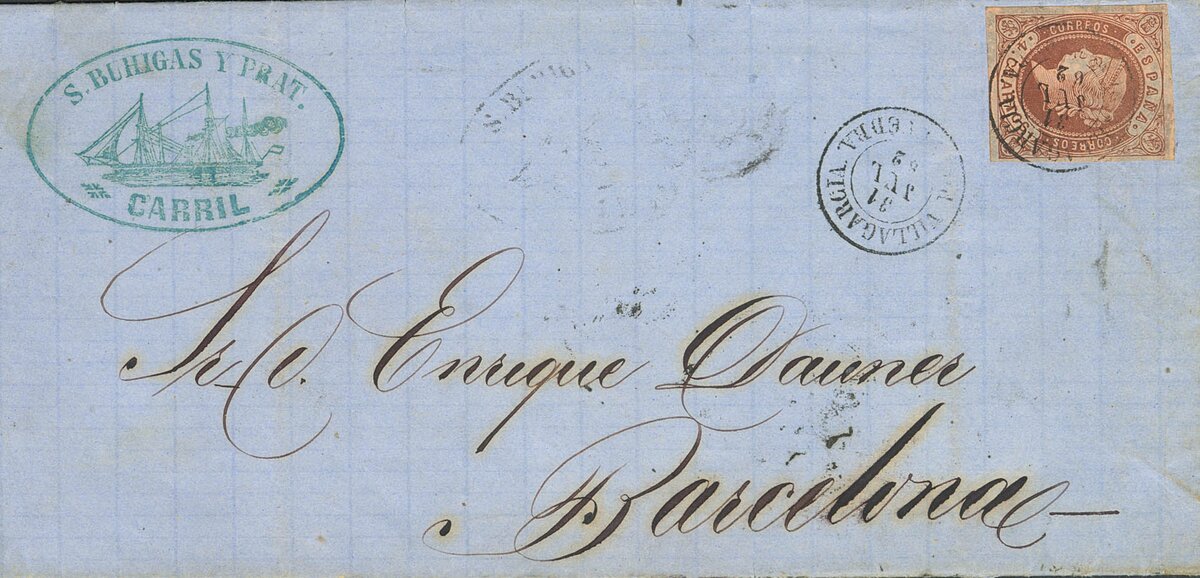 S. BUHIGAS Y PRAT.
CARRIL
CORREOS
ESPAÑA
4 CUARTOS
CORREOS
VILLAGARCIA.
31
JUL
62
Sr. d. Enrique Dauner
Barcelona